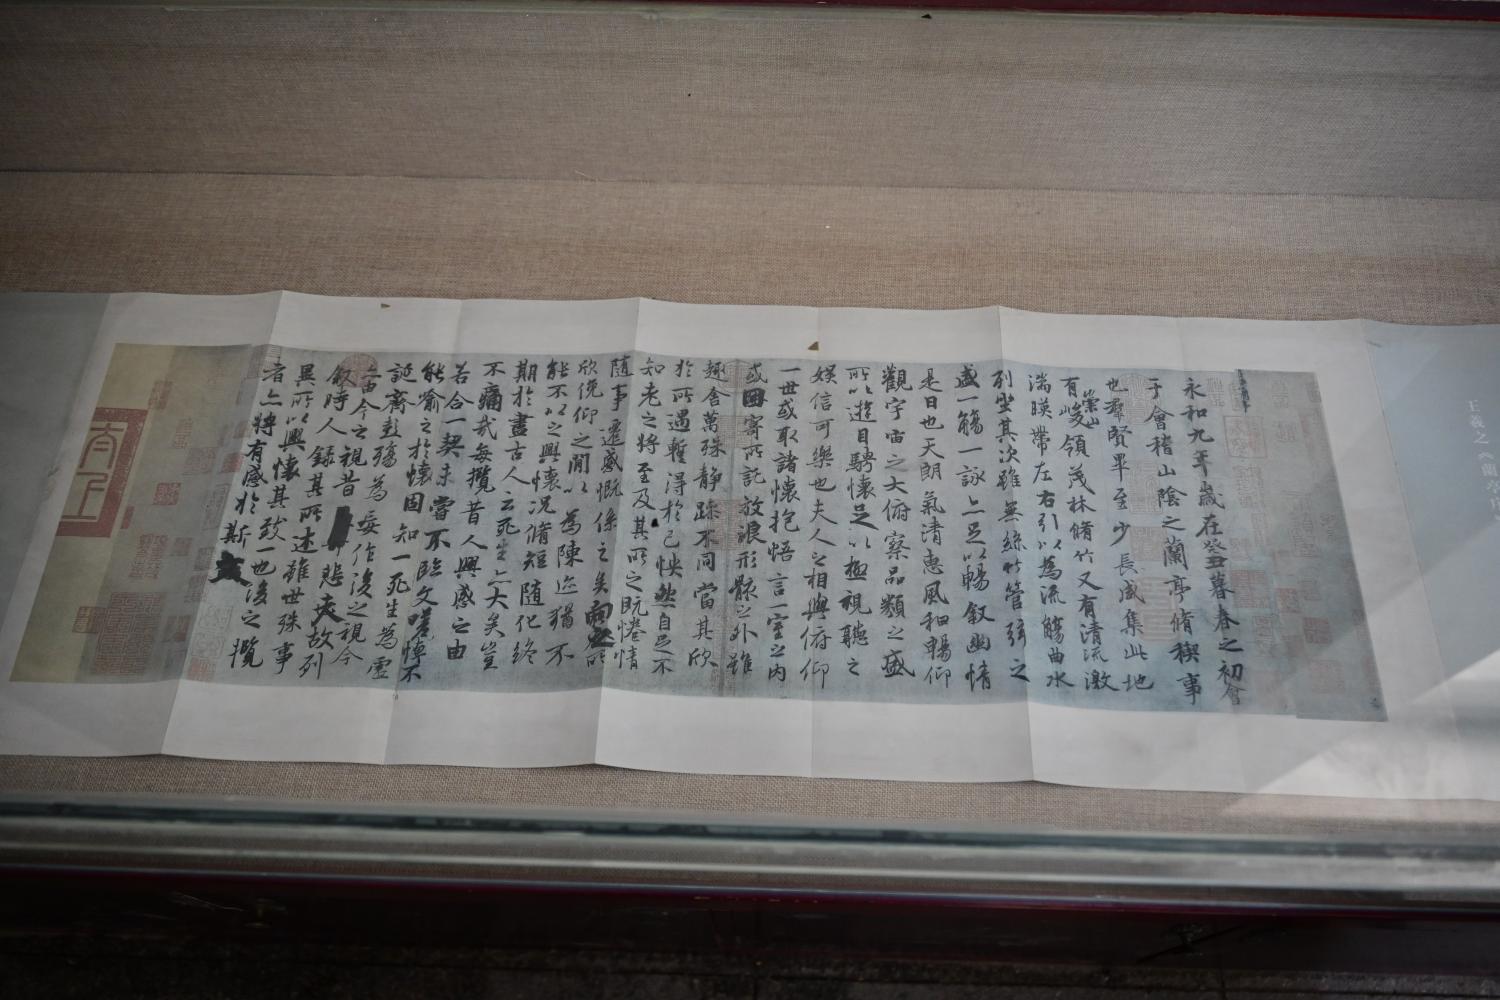 王羲之《蘭亭序
永和九年歲在癸丑暮春之初會
于會稽山陰之蘭亭脩稧事
也羣賢畢至少長咸集此地
有崇山峻領茂林脩竹又有清流激
湍暎帶左右引以為流觴曲水
列坐其次雖無絲竹管弦之
盛一觴一詠亦足以暢敘幽情
是日也天朗氣清惠風和暢仰
觀宇宙之大俯察品類之盛
所以遊目騁懷足以極視聽之
娛信可樂也夫人之相與俯仰
一世或取諸懷抱悟言一室之內
或因寄所託放浪形骸之外雖
趣舍萬殊靜躁不同當其欣
於所遇蹔得於己怏然自足不
知老之將至及其所之既惓情
隨事遷感慨係之矣向之所
欣俛仰之閒以為陳迹猶不
能不以之興懷況脩短隨化終
期於盡古人云死生亦大矣豈
不痛哉每攬昔人興感之由
若合一契未嘗不臨文嗟悼不
能喻之於懷固知一死生為虛
誕齊彭殤為妄作後之視今
亦由今之視昔悲夫故列
敘時人錄其所述雖世殊事
異所以興懷其致一也後之攬
者亦將有感於斯文